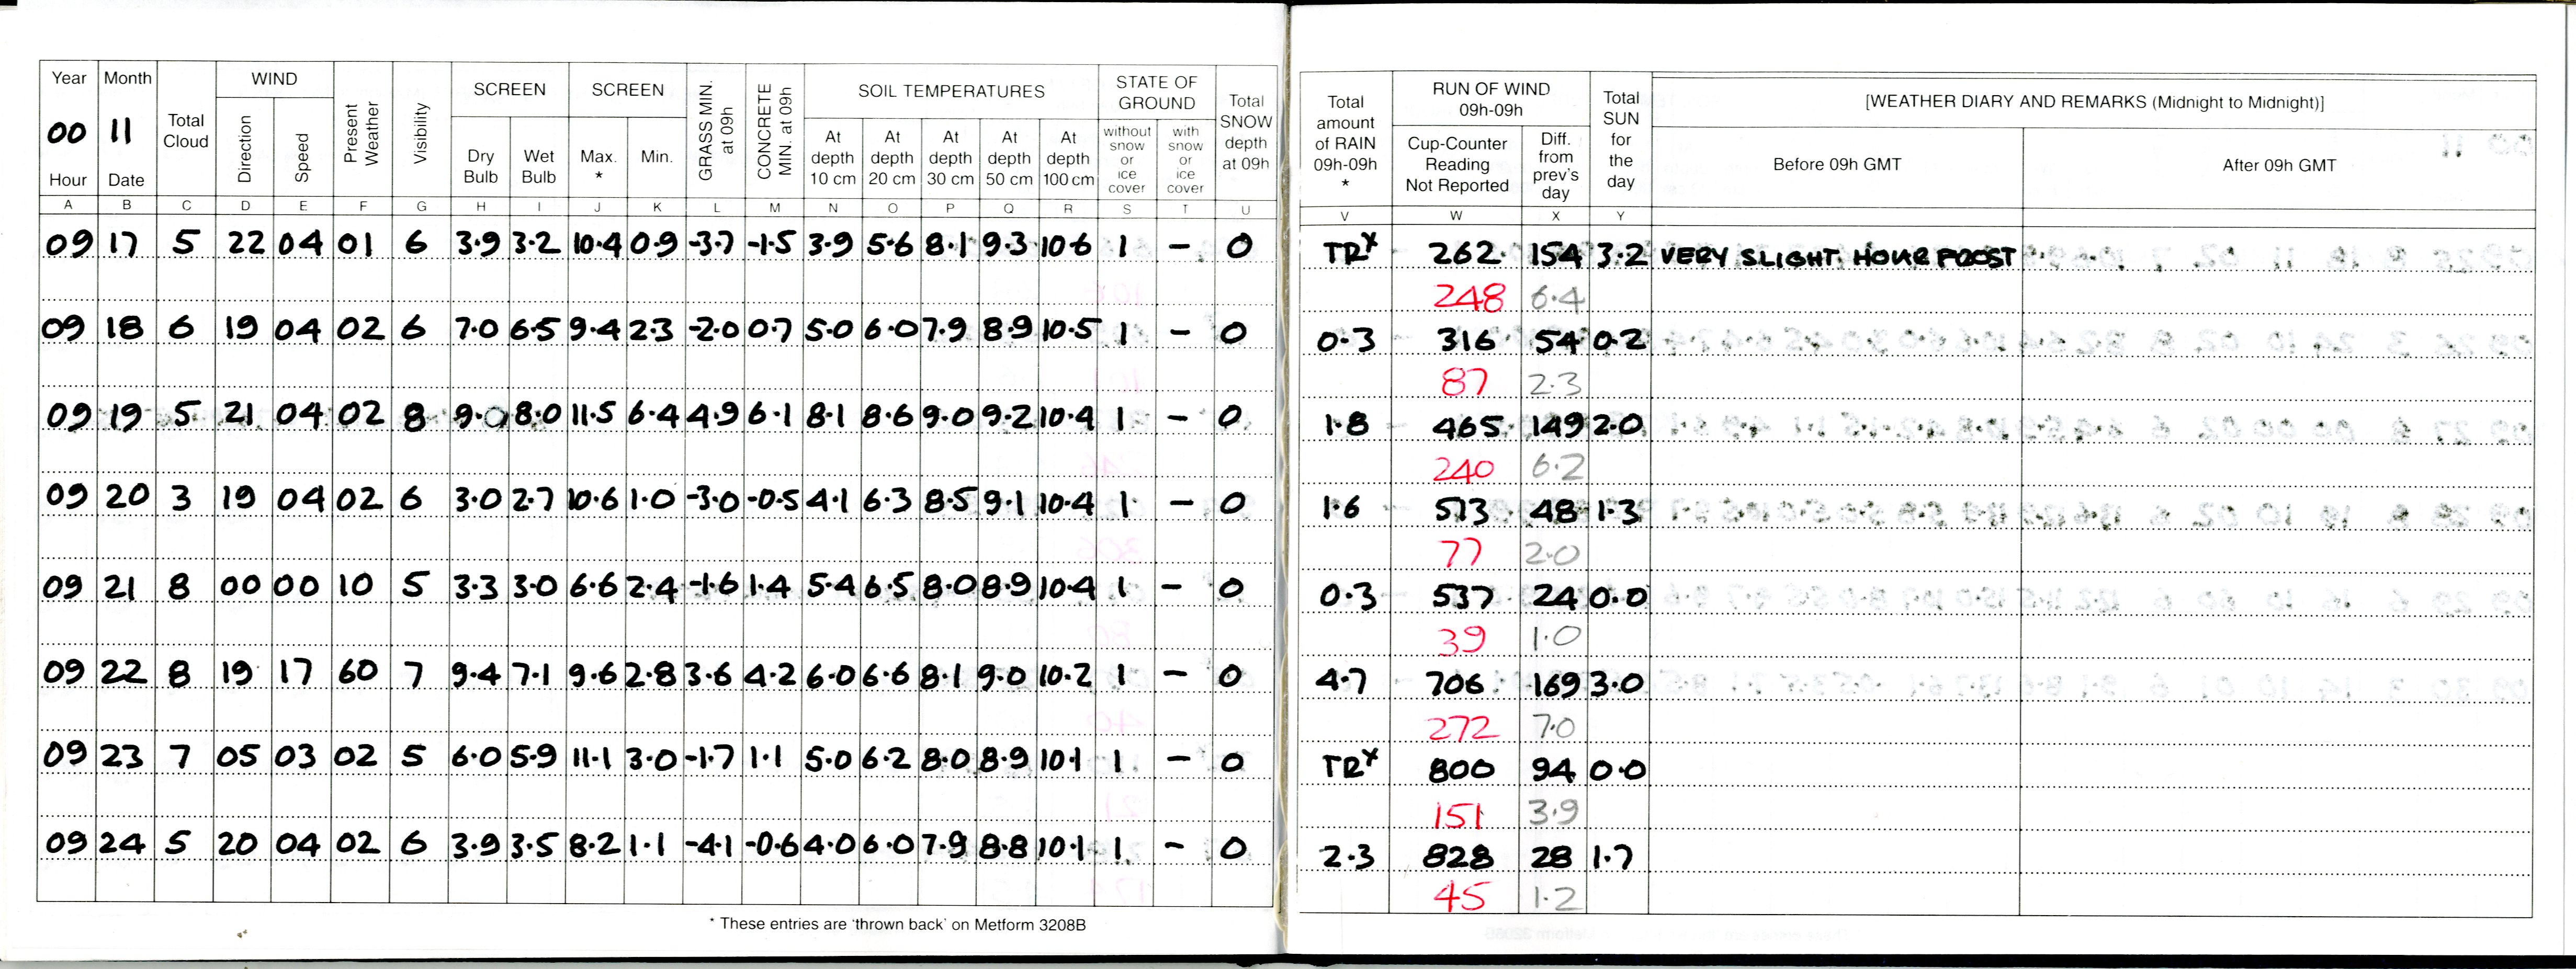 Year Month Total Cloud WIND Present Weather Visibility SCREEN SCREEN GRASS MIN. at 09h CONCRETE MIN. at 09h SOIL TEMPERATURES STATE OF GROUND Total SNOW depth at 09h Total amount of RAIN 09h-09h * RUN OF WIND 09h-09h Total SUN for the day [WEATHER DIARY AND REMARKS (Midnight to Midnight)]
00 11 Direction Speed Dry Bulb Wet Bulb Max. * Min. At depth 10 cm At depth 20 cm At depth 30 cm At depth 50 cm At depth 100 cm without snow or ice cover with snow or ice cover Cup-Counter Reading Not Reported Diff. from prev's day Before 09h GMT After 09h GMT
Hour Date
A B C D E F G H I J K L M N O P Q R S T U V W X Y
09 17 5 22 04 01 6 3.9 3.2 10.4 0.9 -3.7 -1.5 3.9 5.6 8.1 9.3 10.6 1 - 0 TRx 262 154 3.2 VERY SLIGHT HOAR FROST
248 6.4
09 18 6 19 04 02 6 7.0 6.5 9.4 2.3 -2.0 0.7 5.0 6.0 7.9 8.9 10.5 1 - 0 0.3 316 54 0.2
87 2.3
09 19 5 21 04 02 8 9.0 8.0 11.5 6.4 4.9 6.1 8.1 8.6 9.0 9.2 10.4 1 - 0 1.8 465 149 2.0
240 6.2
09 20 3 19 04 02 6 3.0 2.7 10.6 1.0 -3.0 -0.5 4.1 6.3 8.5 9.1 10.4 1 - 0 1.6 513 48 1.3
77 2.0
09 21 8 00 00 10 5 3.3 3.0 6.6 2.4 -1.6 1.4 5.4 6.5 8.0 8.9 10.4 1 - 0 0.3 537 24 0.0
39 1.0
09 22 8 19 17 60 7 9.4 7.1 9.6 2.8 3.6 4.2 6.0 6.6 8.1 9.0 10.2 1 - 0 4.7 706 169 3.0
272 7.0
09 23 7 05 03 02 5 6.0 5.9 11.1 3.0 -1.7 1.1 5.0 6.2 8.0 8.9 10.1 1 - 0 TRx 800 94 0.0
151 3.9
09 24 5 20 04 02 6 3.9 3.5 8.2 1.1 -4.1 -0.6 4.0 6.0 7.9 8.8 10.1 1 - 0 2.3 828 28 1.7
45 1.2
* These entries are 'thrown back' on Metform 3208B